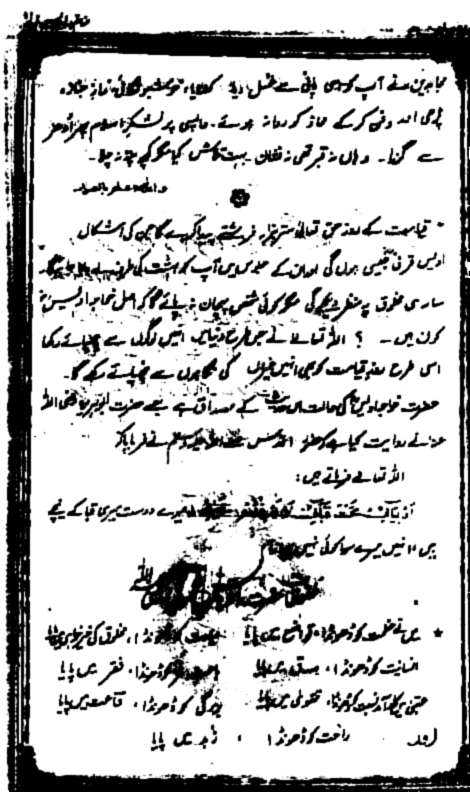 مجاہدین نے آپ کو اسی پانی سے غسل دیا، کفنایا، خوشبو لگائی، نماز جنازہ
پڑھی اور دفن کر کے محاذ کو روانہ ہوئے۔ واپسی پر لشکرِ اسلام پھر اُدھر
سے گذرا۔ وہاں نہ قبر تھی نہ نشان۔ بہت تلاش کیا مگر کچھ پتہ نہ چلا۔
واللہ اعلم بالصواب
* قیامت کے روز حق تعالیٰ ستر ہزار فرشتے پیدا کرے گا جن کی اشکال
اویس قرنی جیسی ہوں گی اور ان کے جلوس میں آپ کو بہشت کی طرف
ساری مخلوق یہ منظر دیکھے گی مگر کوئی شخص پہچان نہ پائے گا کہ اصل خواجہ اویس
کون ہیں۔ ؟ اللہ تعالےٰ نے جس طرح دنیا میں انہیں لوگوں سے چھپائے رکھا
اسی طرح روزِ قیامت کو بھی انہیں غیروں کی نگاہوں سے چھپائے رکھے گا۔
حضرت خواجہ اویس کی حالت اس حدیث کے مصداق ہے جسے حضرت ابوہریرہ رضی اللہ
عنہ نے روایت کیا ہے کہ حضور اقدس صلی اللہ علیہ وسلم نے فرمایا کہ
اللہ تعالےٰ فرماتے ہیں:
میرے دوست میری قبا کے نیچے
ہیں انہیں میرے سوا کوئی نہیں
* میں نے عظمت کو ڈھونڈا، تواضع میں پایا کو ڈھونڈا، مخلوق کی خیر خواہی پایا
انسانیت کو ڈھونڈا، صدق میں پایا کو ڈھونڈا، فقر میں پایا
کو ڈھونڈا، تقویٰ میں پایا بزرگی کو ڈھونڈا، قناعت میں پایا
اور راحت کو ڈھونڈا، زہد میں پایا